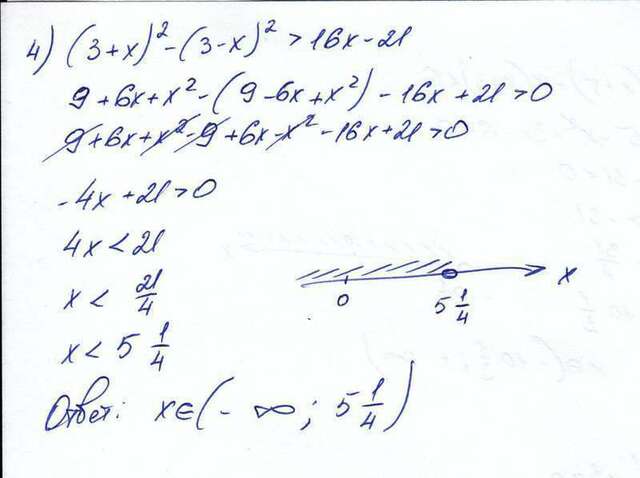 4) (3+x)² - (3-x)² > 16x - 21
9 + 6x + x² - (9 - 6x + x²) - 16x + 21 > 0
9 + 6x + x² - 9 + 6x - x² - 16x + 21 > 0
-4x + 21 > 0
4x < 21
x < 21/4
x < 5 1/4
0 5 1/4 x
Ответ: x ∈ (-∞; 5 1/4)